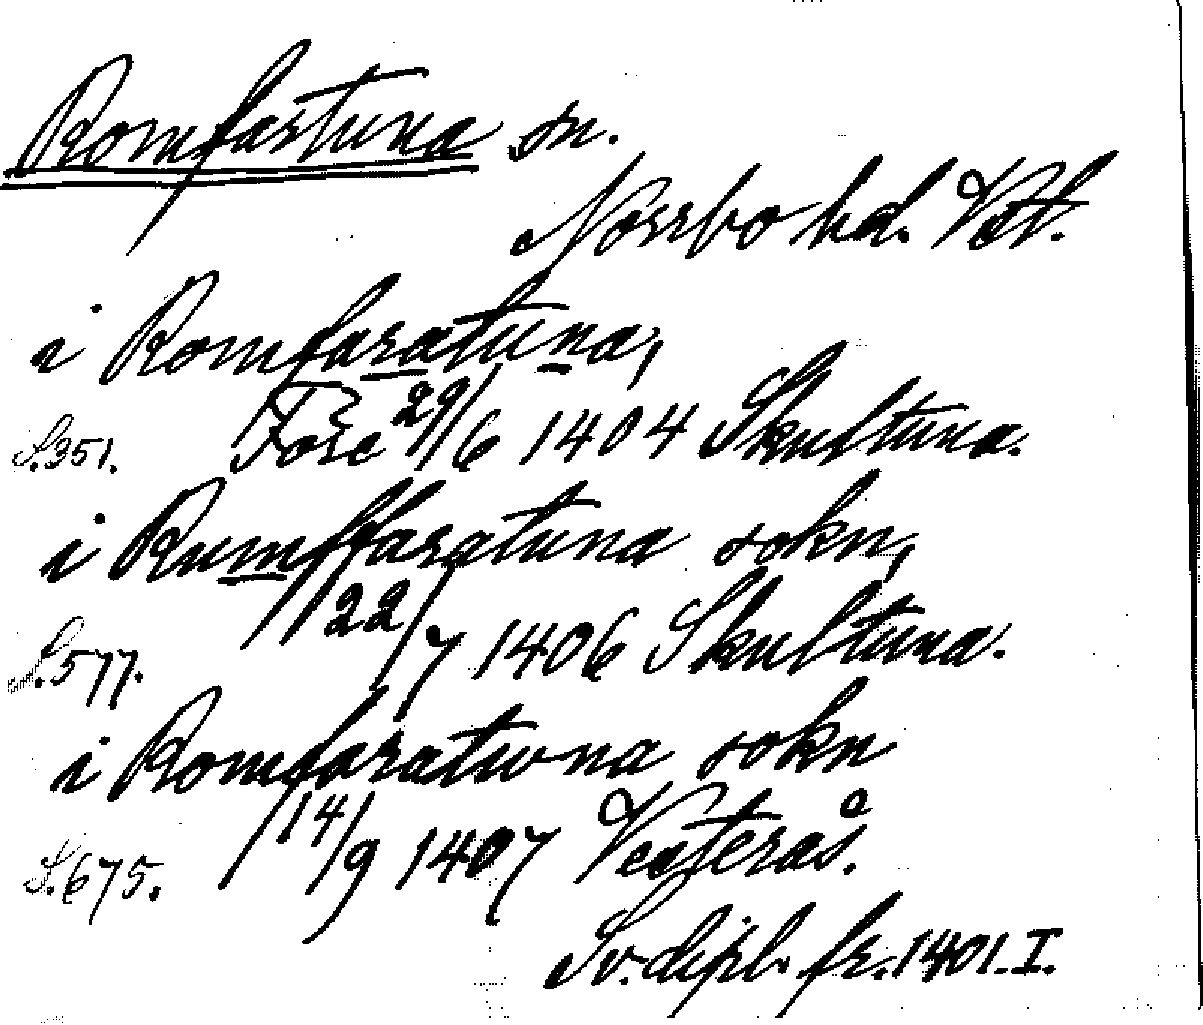 Romfartuna sn.
Norrbo hd. Vstl.
i Romfaratuna,
S.351. Förc 29/6 1404 Skultuna.
i Rumffaratuna sokn,
S.577. 22/7 1406 Skultuna.
i Romfaratwna sokn
S.675. 14/9 1407 Västerås.
Sv. dipl. fr. 1401. I.